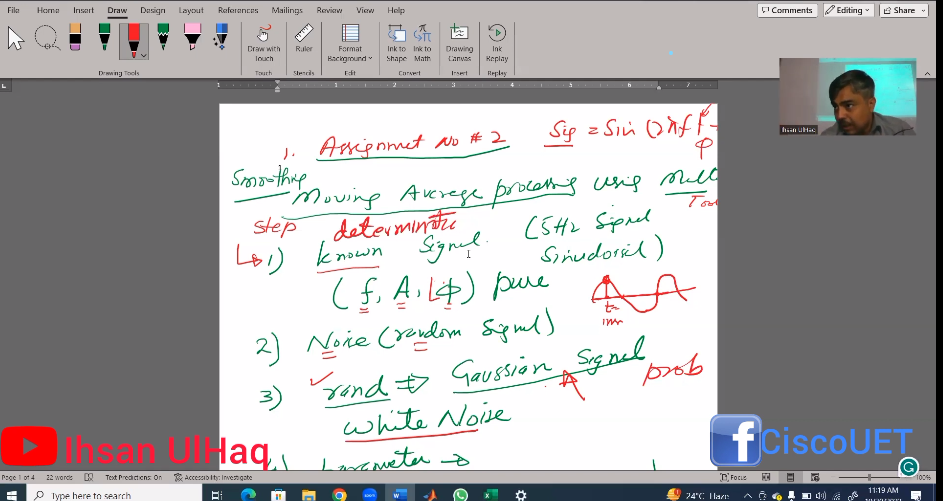 File Home Insert Draw Design Layout References Mailings Review View Help
Comments Editing Share
Draw with Touch
Ruler
Format Background
Ink to Shape
Ink to Math
Drawing Canvas
Ink Replay
Drawing Tools Touch Stencils Edit Convert Insert Replay
Ihsan UlHaq
1 1 2 3 4 5 6 7
1. Assignmet No # 2 Sig = Sin (2πft + φ
Smoothing
Moving Average processing using
step determinatic
1) known Signal (5Hz Signal
Sinudossil)
(f, A, φ) pure
2) Noise (random Signal)
3) rand ⇒ Gaussian Signal prob
white Noise
Parameter →
Ihsan UlHaq
CiscoUET
Page 1 of 4 22 words Text Predictions: On Accessibility: Investigate Focus 100%
Type here to search
24°C Haze
11:19 AM